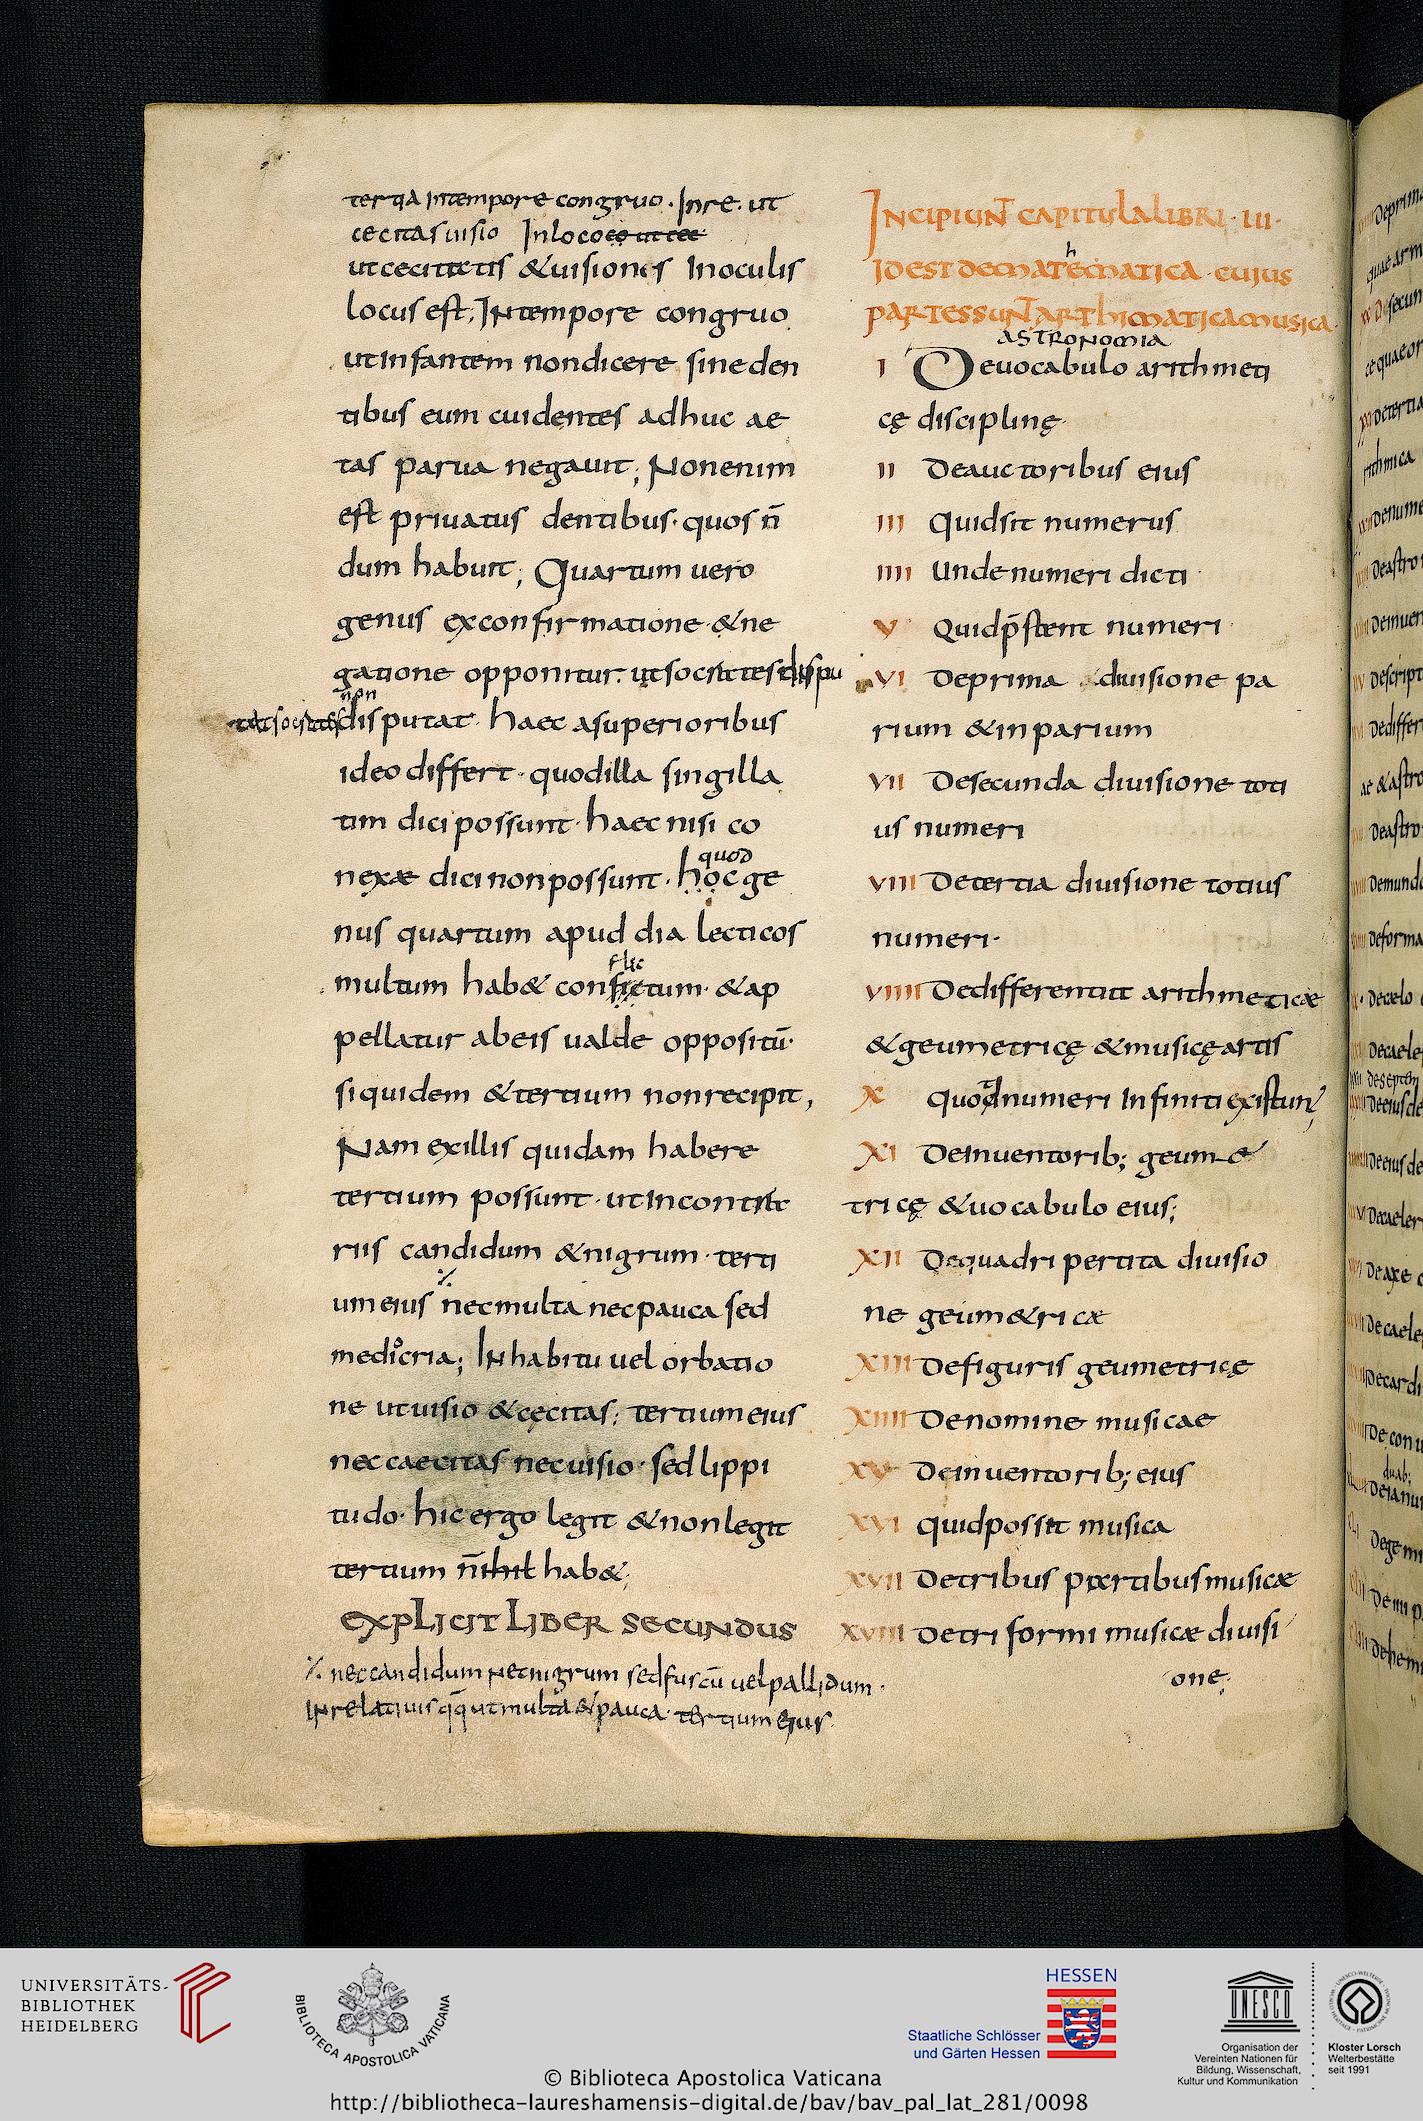 tertia intempore congruo. Inre. ut
cecitas uisio Inloco eo ut cec
utcecitatis &uisionis Inoculis
locus est; Intempore congruo
utinfantem nondicere sineden
tibus eum cuidentes adhuc ae
tas parua negauit; Nonenim
est priuatus dentibus· quos n̄
dum habuit; Quartum uero
genus exconfirmatione·&ne
gatione opponitur. utsocratesdispu
non
tat socrates disputat· haec asuperioribus
ideo differt· quodilla singilla
tim dici possunt· haec nisi co
nexæ dicinonpossunt· hoc ge
quod
nus quartum apud dia lecticos
multum hab& confictum· &ap
flic
pellatur abeis ualde oppositū·
siquidem &tertium nonrecipit,
Nam exillis quidam habere
tertium possunt· utIncontra
riis candidum &nigrum· terti
umeius ⁒ necmulta necpauca sed
mediocria; Inhabitu uel orbatio
ne utuisio &cęcitas; tertiumeius
nec caecitas necuisio· sed lippi
tudo· hic ergo legit &nonlegit
tertium n̄ihil hab&;
EXPLICIT LIBER SECUNDUS
⁒ neccandidum necnigrum sedfuscū uelpallidum·
Inrelatiuis qq̄ utmulta &pauca· tertium eius
INCIPIUNT CAPITULA LIBRI· III·
IDEST DEMATEMATICA CUIUS
h
PARTESSUNT ARTHIMATICAMUSICA
ASTRONOMIA
I Deuocabulo arithmeti
cę disciplinę
II Deauctoribus eius
III Quidsit numerus
IIII Undenumeri dicti
V Quidp̄stent numeri
VI Deprima diuisione pa
rium &inparium
VII Desecunda diuisione toti
us numeri
VIII Detertia diuisione totius
numeri·
VIIII Dedifferentia arithmeticæ
&geumetricę &musicę artis
X Quodnumeri Infiniti existunt
XI Deinuentorib; geume
tricę &uocabulo eius;
XII Dequadripertita diuisio
ne geum&ricæ
XIII Defiguris geumetricę
XIIII Denomine musicae
XV Deinuentorib; eius
XVI quidpossit musica
XVII Detribus partibusmusicæ
XVIII Detriformi musicæ diuisi
one;
UNIVERSITÄTS-
BIBLIOTHEK
HEIDELBERG
BIBLIOTECA APOSTOLICA VATICANA
HESSEN
Staatliche Schlösser
und Gärten Hessen
UNESCO
Organisation der
Vereinten Nationen für
Bildung, Wissenschaft,
Kultur und Kommunikation
Kloster Lorsch
Welterbestätte
seit 1991
© Biblioteca Apostolica Vaticana
http://bibliotheca-laureshamensis-digital.de/bav/bav_pal_lat_281/0098